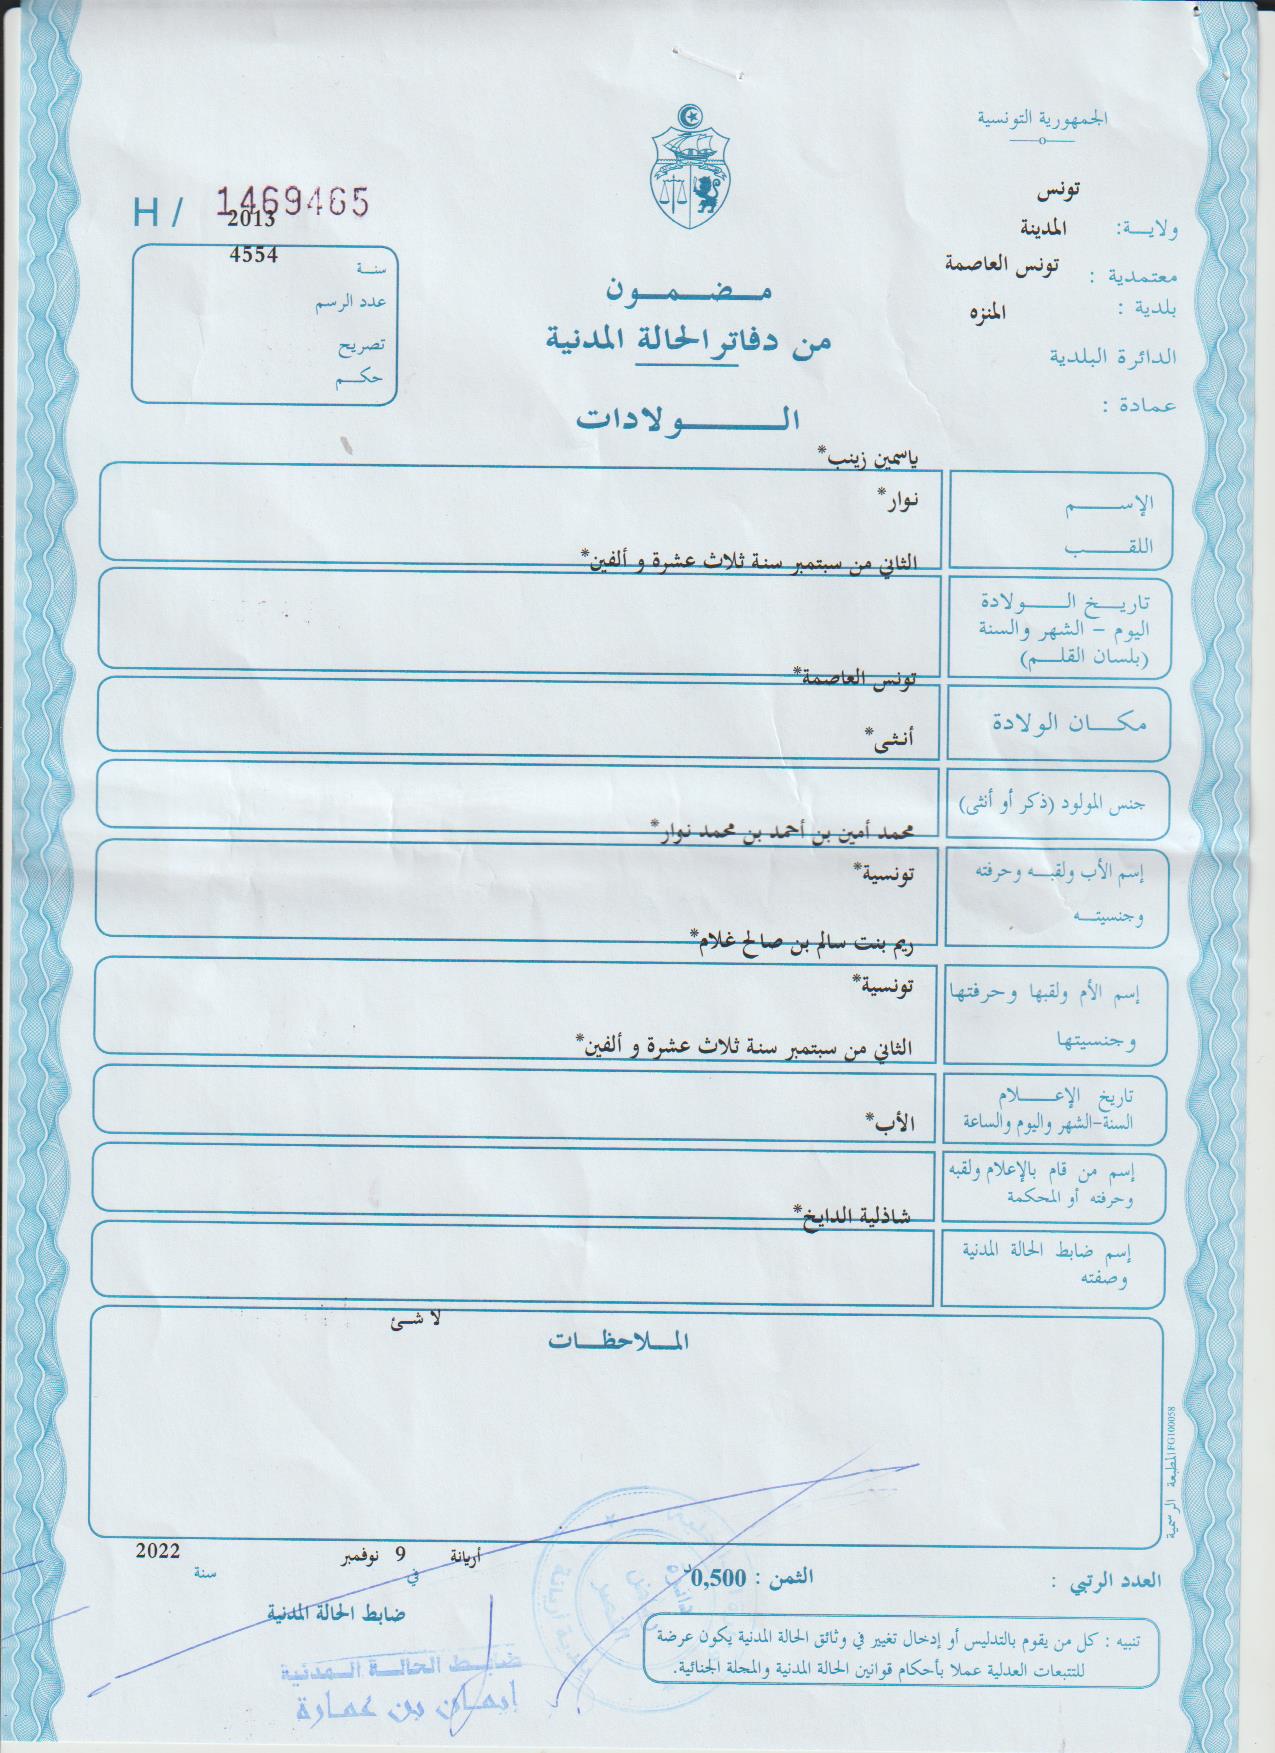 الجمهورية التونسية
تونس
ولايـــة:
المدينة
معتمدية :
تونس العاصمة
بلدية :
المنزه
الدائرة البلدية
عمادة :
H / 1469465
2013
4554
سنـة
عدد الرسم
تصريح
حكـم
مـضـمـون
من دفاتر الحالة المدنية
الـــولادات
ياسمين زينب*
الإســـم
نوار*
اللقـــب
الثاني من سبتمبر سنة ثلاث عشرة و ألفين*
تاريـخ الـــولادة
اليوم - الشهر والسنة
(بلسان القلـم)
تونس العاصمة*
مكـــان الولادة
أنثى*
جنس المولود (ذكر أو أنثى)
محمد أمين بن أحمد بن محمد نوار*
إسم الأب ولقبـه وحرفته
تونسية*
وجنسيتـه
ريم بنت سالم بن صالح غلام*
إسم الأم ولقبها وحرفتها
تونسية*
وجنسيتها
الثاني من سبتمبر سنة ثلاث عشرة و ألفين*
تاريخ الإعـــلام
السنة-الشهر واليوم والساعة
الأب*
إسم من قام بالإعلام ولقبه
وحرفته أو المحكمة
شاذلية الدايخ*
إسم ضابط الحالة المدنية
وصفته
لا شئ
المـلاحظـات
المطبعة الرسمية FG100058
العدد الرتبي :
الثمن : 0,500د
أريانة في 9 نوفمبر سنة 2022
ضابط الحالة المدنية
ضابط الحالة المدنية
إيمان بن عمارة
تنبيه : كل من يقوم بالتدليس أو إدخال تغيير في وثائق الحالة المدنية يكون عرضة
للتتبعات العدلية عملا بأحكام قوانين الحالة المدنية والمجلة الجنائية.